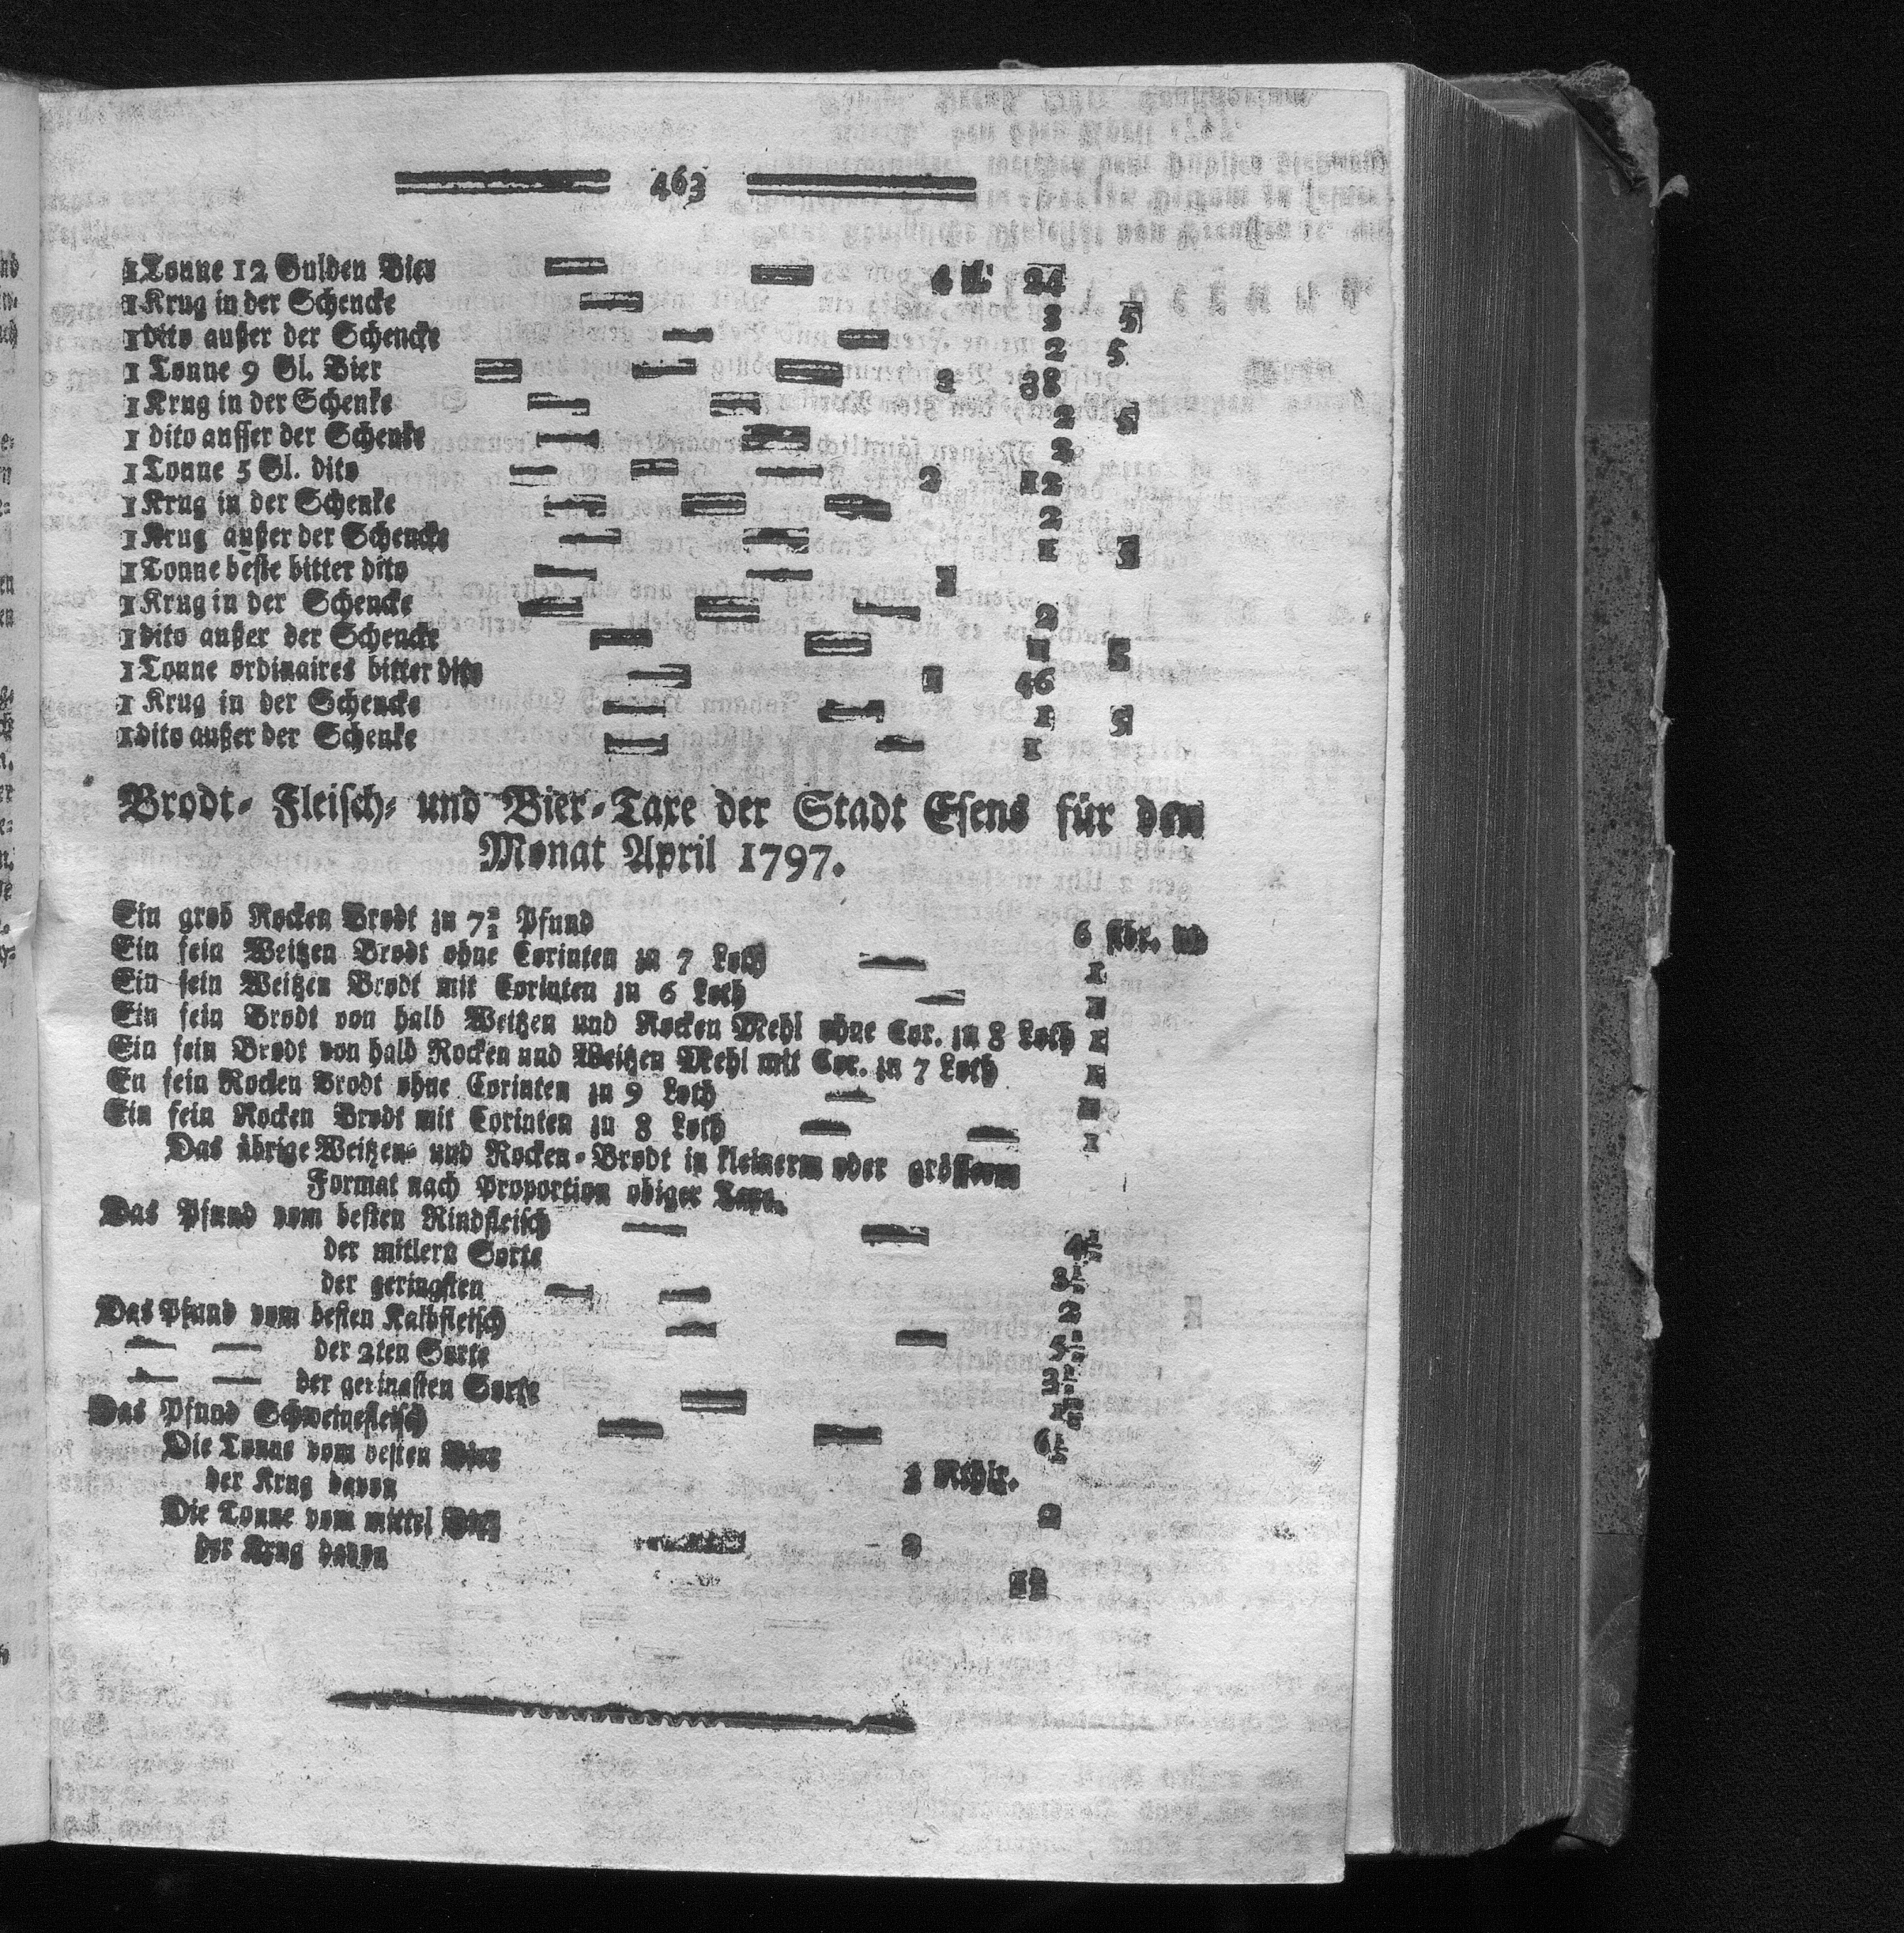 463
1 Tonne 12 Gulden Bier — — 4 24
1 Krug in der Schencke — 3 5
1 dito außer der Schencke — — 2 5
1 Tonne 9 Gl. Bier — — — 38
1 Krug in der Schenke — — 2 5
1 dito ausser der Schenke — — 2
1 Tonne 5 Gl. dito — — — 2 12
1 Krug in der Schenke — — — 2
1 Krug außer der Schencke — — 1 5
1 Tonne beste bitter dito — —
1 Krug in der Schencke — — — 2
1 dito außer der Schencke — — 1 5
1 Tonne ordinaires bitter dito — 1 46
1 Krug in der Schencke — — 1 5
1 dito außer der Schenke — — 1
Brodt- Fleisch- und Bier-Taxe der Stadt Esens für den
Monat April 1797.
Ein grob Rocken Brodt zu 7 Pfund 6
Ein fein Weitzen Brodt ohne Corinten zu 7 Loth — 1
Ein fein Weitzen Brodt mit Corinten zu 6 Loth — 1
Ein fein Brodt von halb Weitzen und Rocken Mehl ohne Cor. zu 8 Loth 1
Ein fein Brodt von halb Rocken und Weitzen Mehl mit Cor. zu 7 Loth 1
En fein Rocken Brodt ohne Corinten zu 9 Loth — 1
Ein fein Rocken Brodt mit Corinten zu 8 Loth — — 1
Das übrige Weitzen- und Rocken-Brodt in kleinerm oder grösserm
Format nach Proportion obiger Taxe.
Das Pfund vom besten Rindfleisch — — 4
der mitlern Sorte 3
der geringsten — — 2
Das Pfund vom besten Kalbfleisch — — 5
— — der 2ten Sorte
— — der geringsten Sorte — 1
Das Pfund Schweinefleisch — — 6
Die Tonne vom besten Bier Rthlr.
der Krug davon 2
Die Tonne vom mittel Bier — 2
der Krug davon